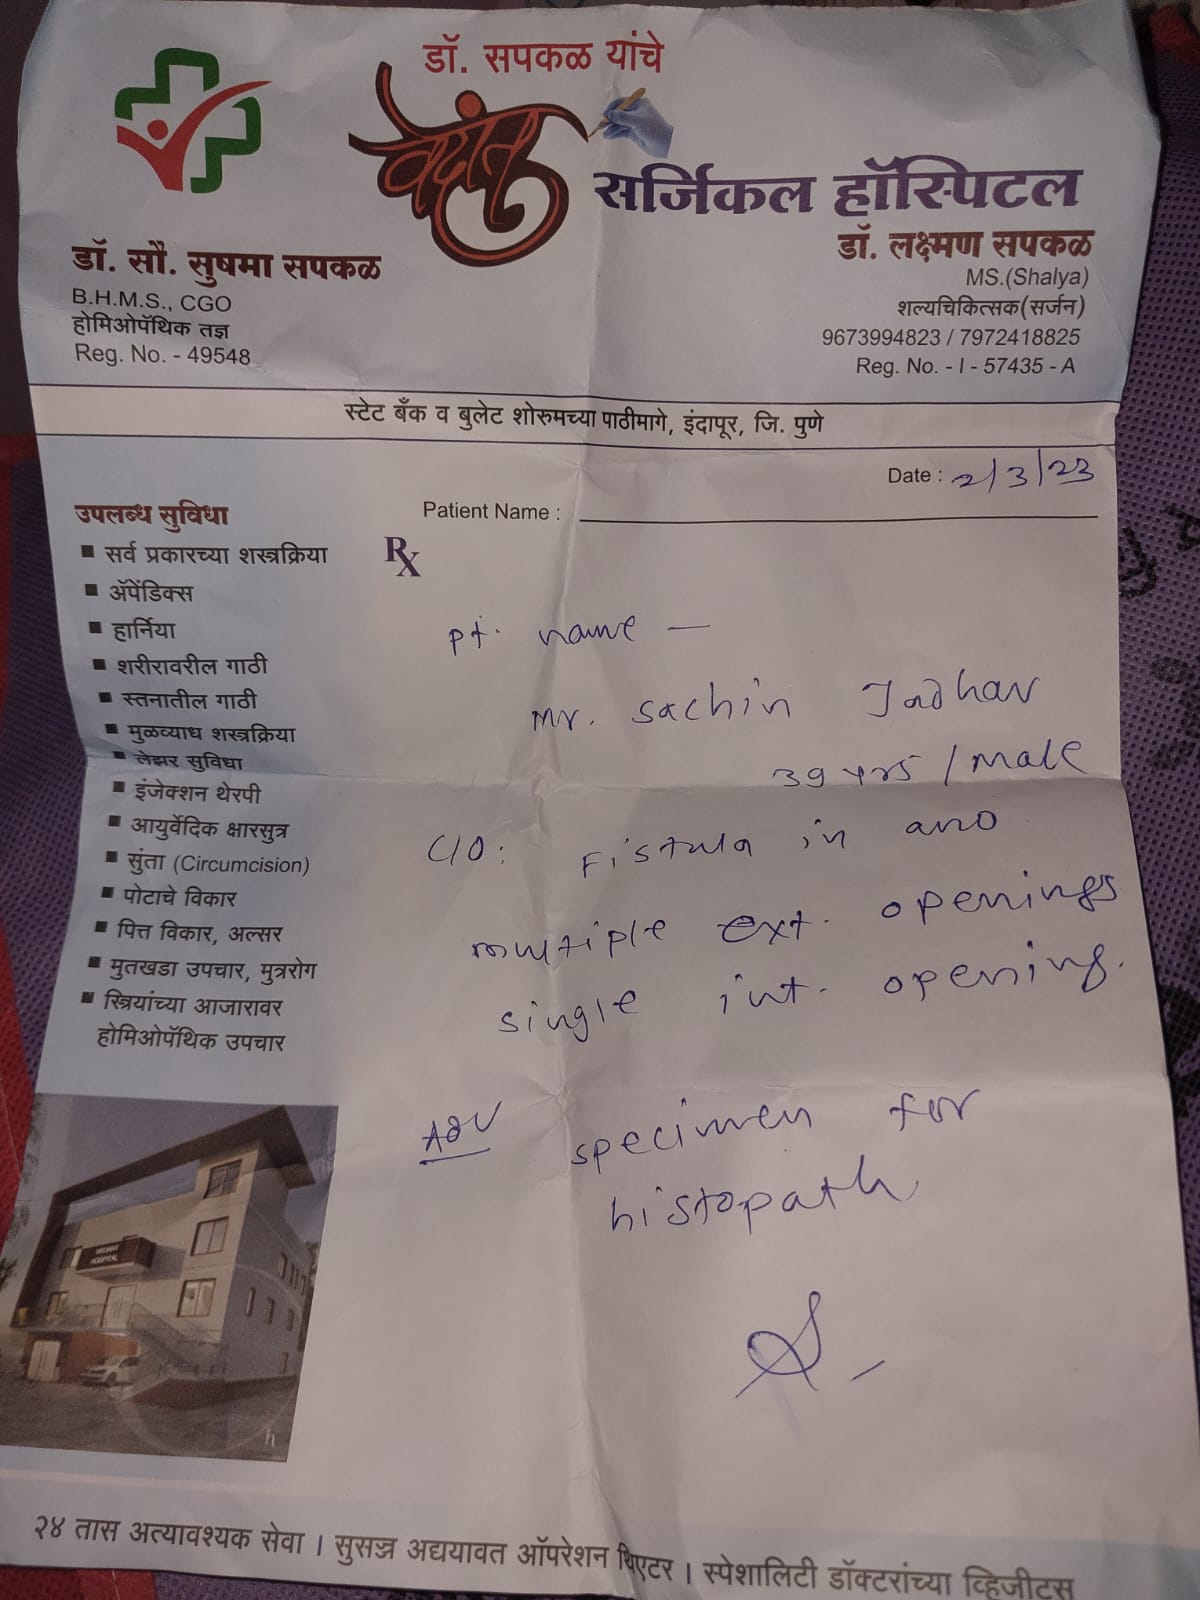 डॉ. सपकळ यांचे
वेदांत
सर्जिकल हॉस्पिटल
डॉ. सौ. सुषमा सपकळ
B.H.M.S., CGO
होमिओपॅथिक तज्ञ
Reg. No. - 49548
डॉ. लक्ष्मण सपकळ
MS.(Shalya)
शल्यचिकित्सक(सर्जन)
9673994823 / 7972418825
Reg. No. - I - 57435 - A
स्टेट बँक व बुलेट शोरुमच्या पाठीमागे, इंदापूर, जि. पुणे
Date : 2/3/23
Patient Name :
उपलब्ध सुविधा
■ सर्व प्रकारच्या शस्त्रक्रिया
■ ॲपेंडिक्स
■ हार्निया
■ शरीरावरील गाठी
■ स्तनातील गाठी
■ मुळव्याध शस्त्रक्रिया
■ लेझर सुविधा
■ इंजेक्शन थेरपी
■ आयुर्वेदिक क्षारसुत्र
■ सुंता (Circumcision)
■ पोटाचे विकार
■ पित्त विकार, अल्सर
■ मुतखडा उपचार, मुत्ररोग
■ स्त्रियांच्या आजारावर
होमिओपॅथिक उपचार
Rx
pt. name —
Mr. Sachin Jadhav
39 yrs / male
C/O: Fistula in ano
multiple ext. openings
single int. opening.
Adv specimen for
histopath
VEDANT
HOSPITAL
२४ तास अत्यावश्यक सेवा । सुसज्ज अद्ययावत ऑपरेशन थिएटर । स्पेशालिटी डॉक्टरांच्या व्हिजीटस्